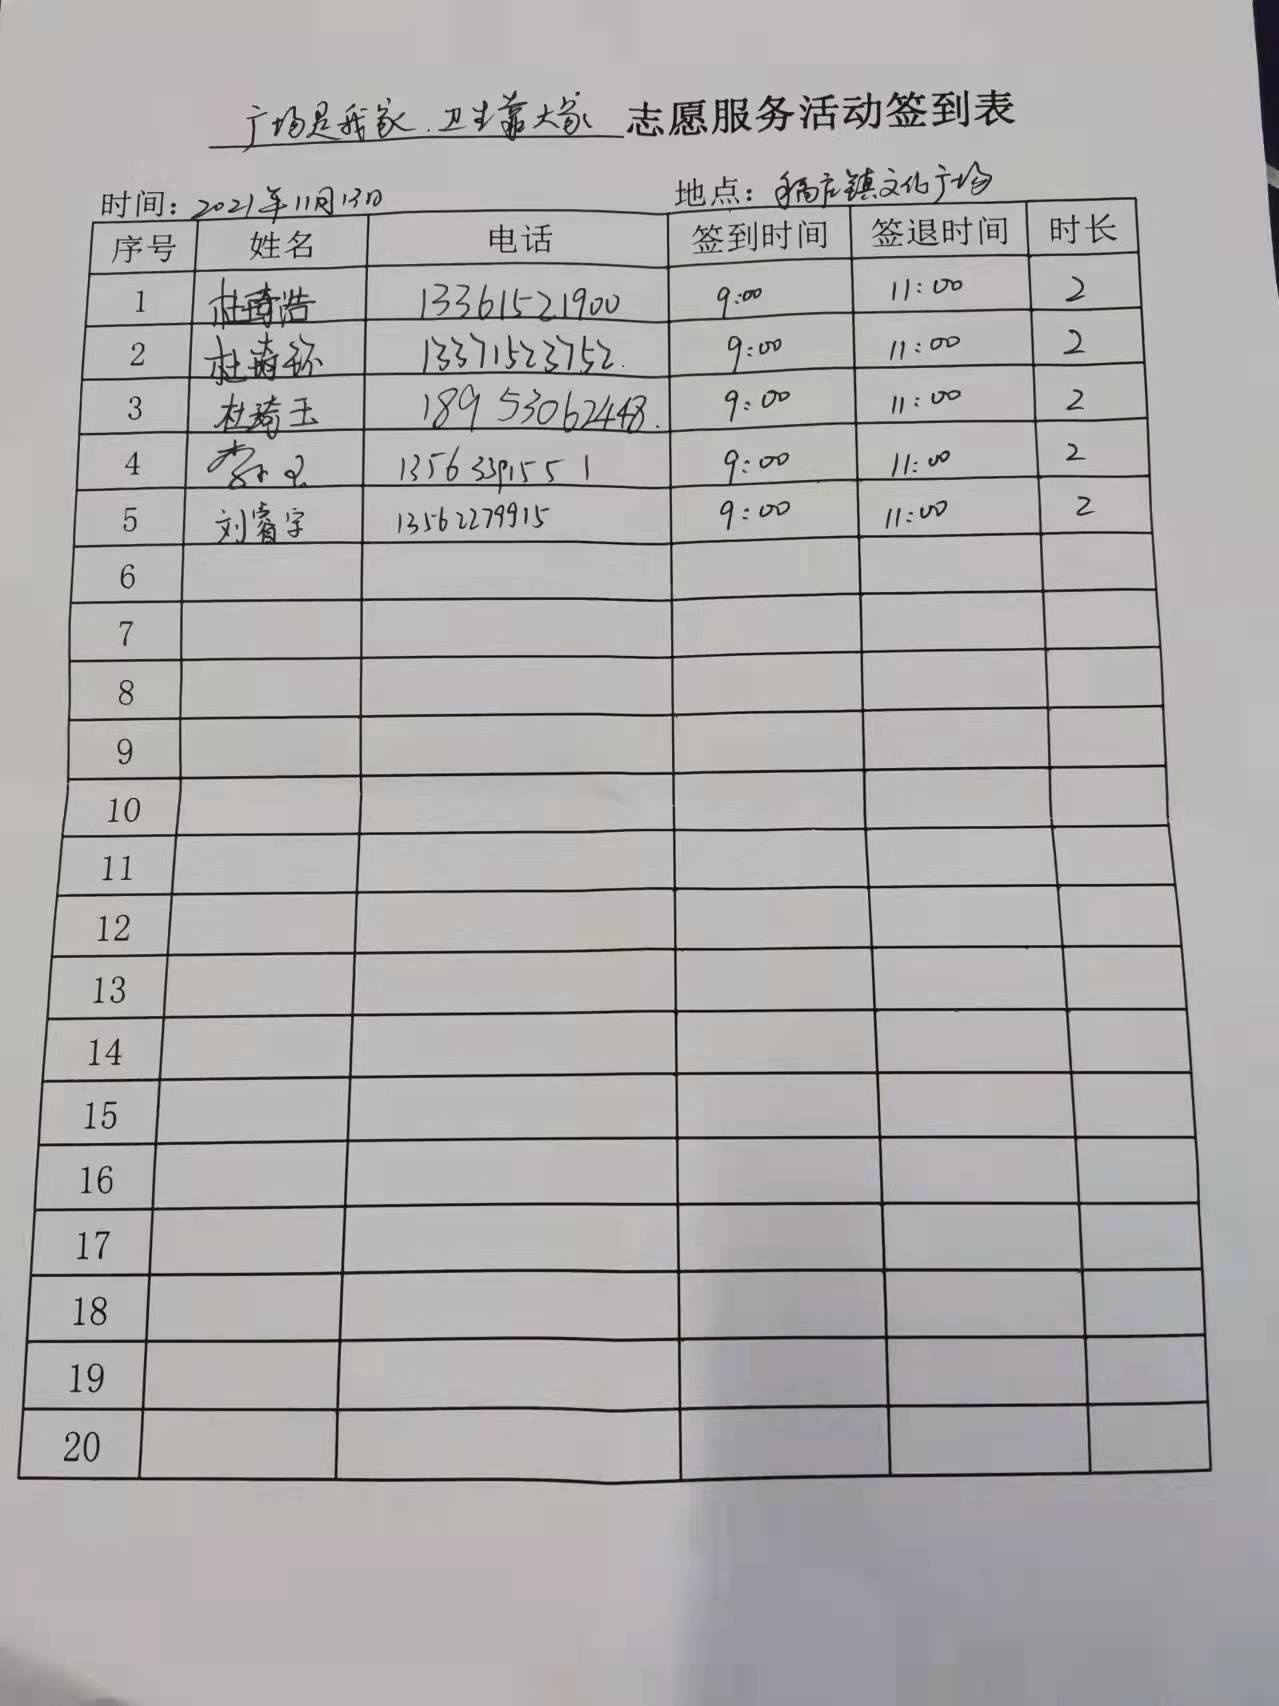 广场是我家.卫生靠大家 志愿服务活动签到表
时间：2021年11月13日 地点：稻庄镇文化广场
序号 姓名 电话 签到时间 签退时间 时长
1 杜琦浩 13361521900 9:00 11:00 2
2 杜琦 13371523752. 9:00 11:00 2
3 杜琦玉 18953062448. 9:00 11:00 2
4 李 13563391551 9:00 11:00 2
5 刘睿宇 13562279915 9:00 11:00 2
6
7
8
9
10
11
12
13
14
15
16
17
18
19
20